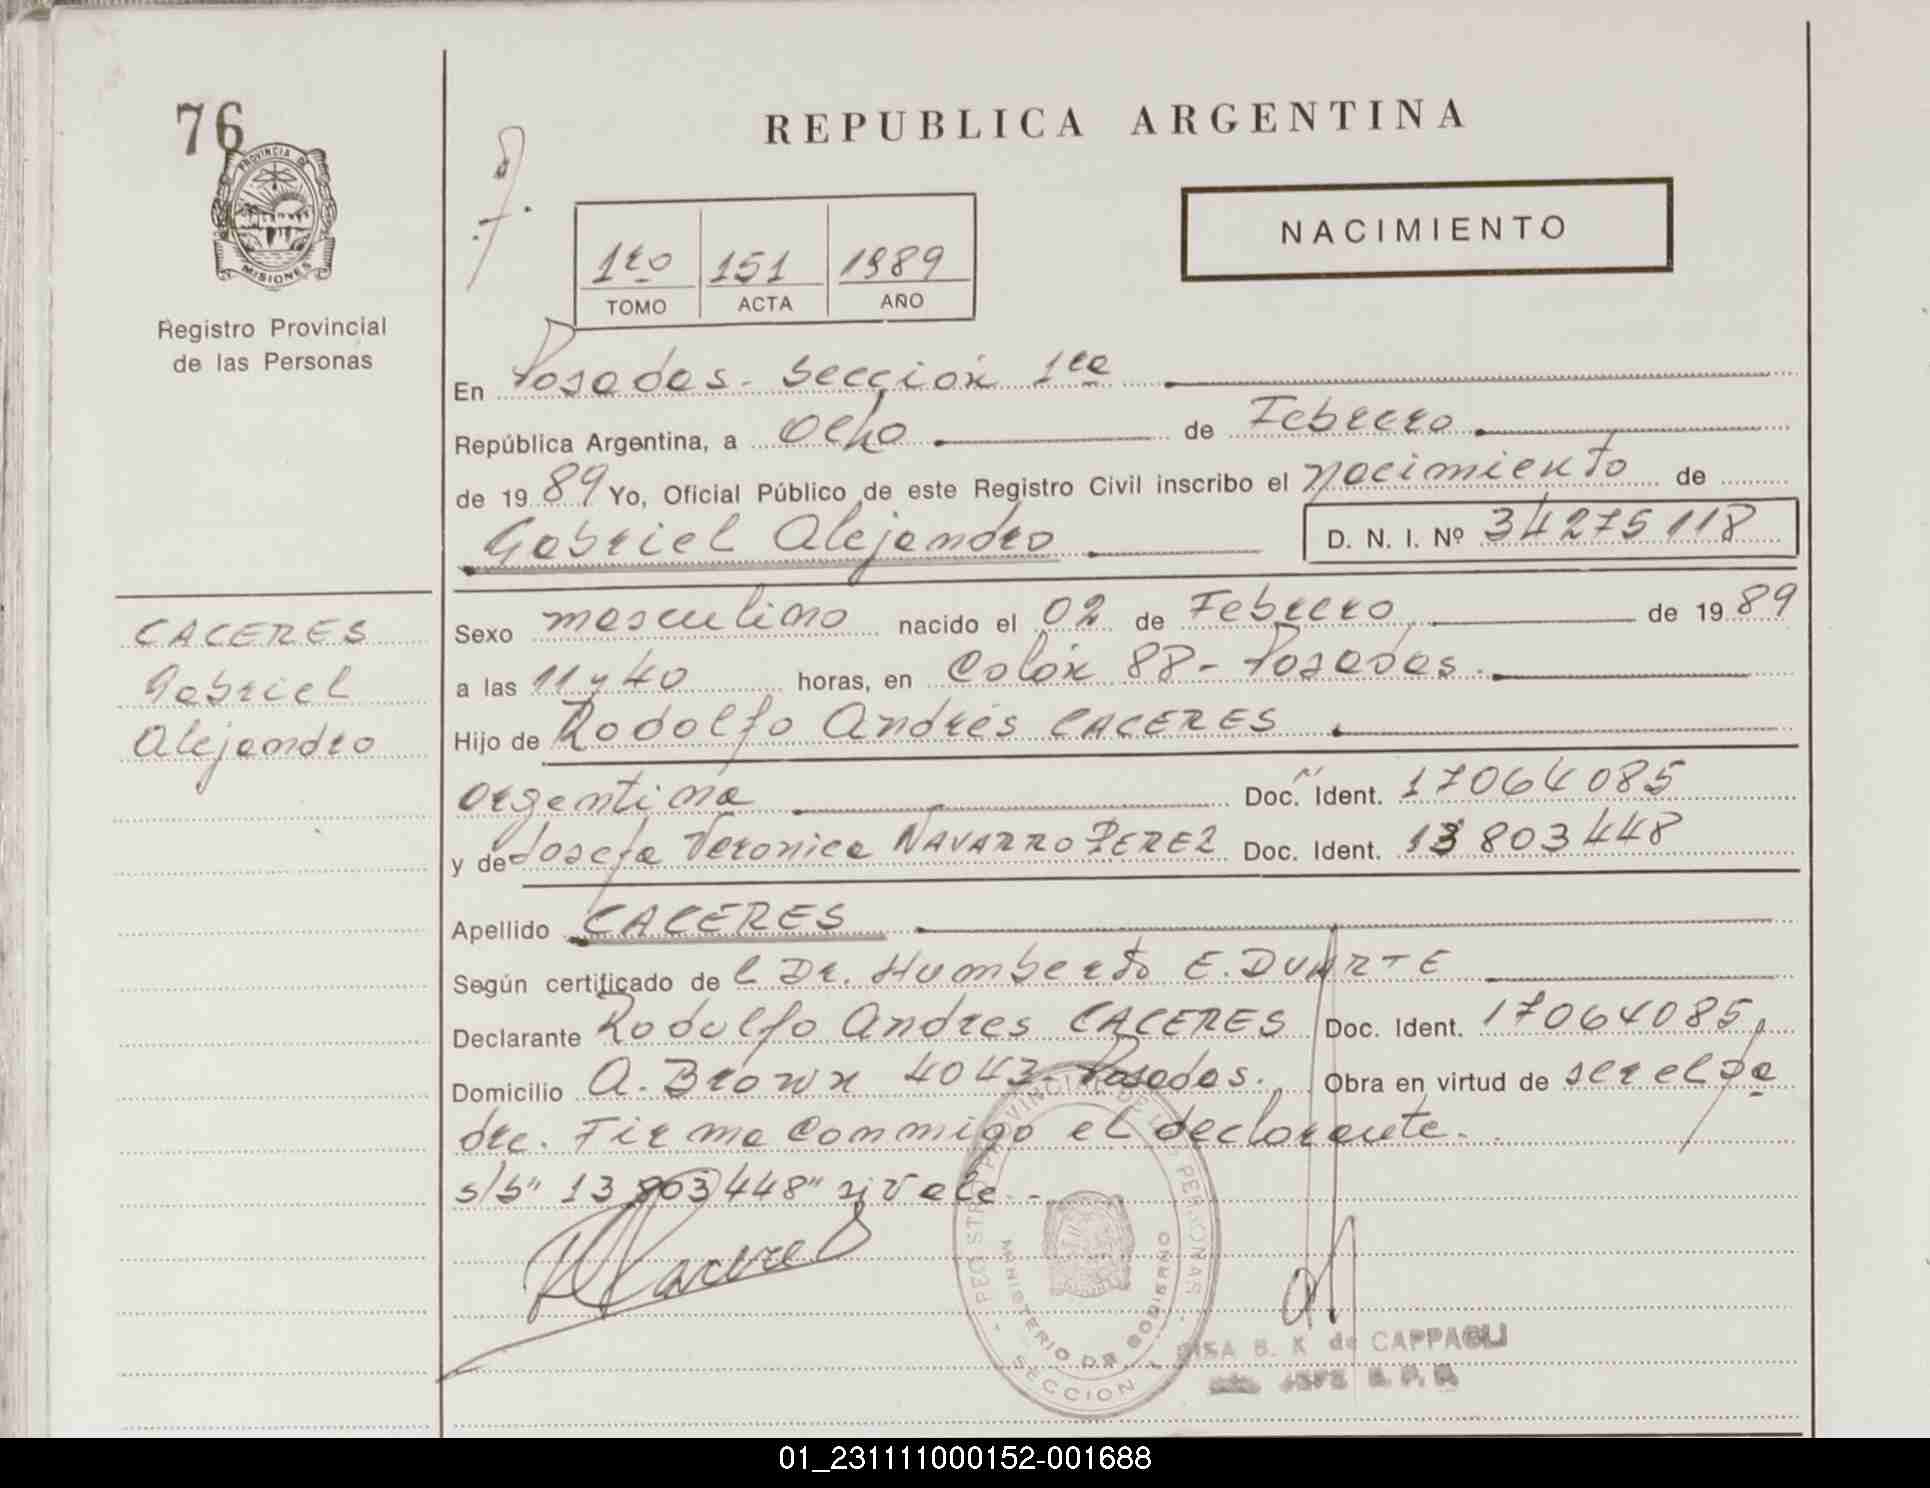 76
PROVINCIA DE
MISIONES
Registro Provincial
de las Personas
REPUBLICA ARGENTINA
NACIMIENTO
1ro 151 1989
TOMO ACTA AÑO
En Posadas - Sección 1ra
República Argentina, a Ocho de Febrero
de 1989 Yo, Oficial Público de este Registro Civil inscribo el nacimiento de
Gabriel Alejandro D. N. I. Nº 34275118
CACERES
Gabriel
Alejandro
Sexo masculino nacido el 02 de Febrero de 1989
a las 11 y 40 horas, en Colón 88 - Posadas.
Hijo de Rodolfo Andrés CACERES
argentina Doc. Ident. 17064085
y de Josefa Veronica NAVARRO PEREZ Doc. Ident. 13803448
Apellido CACERES
Según certificado de l Dr. Humberto E. DUARTE
Declarante Rodolfo Andres CACERES Doc. Ident. 17064085
Domicilio A. Brown 4043 - Posadas. Obra en virtud de ser el pa
dre. Firma conmigo el declarante.
s/b" 13803448" si vale.-
REGISTRO PROVINCIAL DE LAS PERSONAS
MINISTERIO DE GOBIERNO
SECCION 1
B. K de CAPPAGLI
JEFE
01_231111000152-001688